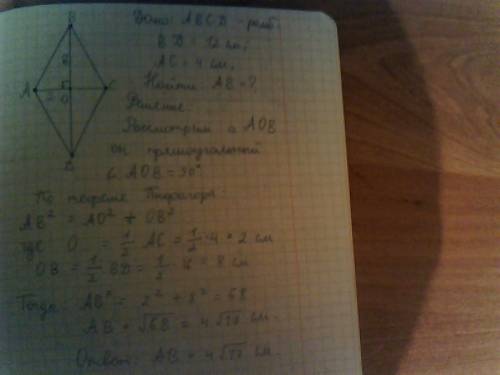 Дано: ABCD - ромб
BD = 12 см,
AC = 4 см,
Найти: AB = ?
Решение
Рассмотрим △ AOB
он прямоугольный
∠ AOB = 90°
По теореме Пифагора:
AB² = AO² + OB²
где O = 1/2 AC = 1/2 · 4 = 2 см
OB = 1/2 BD = 1/2 · = 8 см
Тогда AB² = 2² + 8² = 68
AB = √68 = 4√17 см
Ответ: AB = 4√17 см.
B
8
A
2
O
C